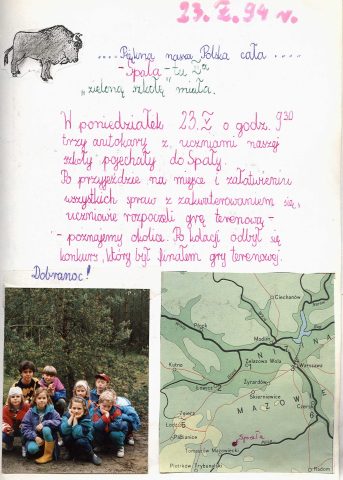 23. V. 94 r.
.... Piękna nasza Polska cała ....
- Spała - tu Va
"zieloną szkołę" miała.
W poniedziałek 23. V o godz. 9³⁰
trzy autokary z uczniami naszej
szkoły pojechały do Spały.
Po przyjeździe na miejsce i załatwieniu
wszystkich spraw z zakwaterowaniem się,
uczniowie rozpoczęli grę terenową -
- poznajemy okolice. Po kolacji odbył się
konkurs, który był finałem gry terenowej.
Dobranoc!
Ciechanów
Płock
Modlin
Kutno
Żelazowa Wola
Warszawa
Łowicz
Żyrardów
Skierniewice
Zgierz
MAZOWE
Łódź
Pabianice
Spała
Tomaszów Mazowiecki
Piotrków Trybunalski
Radom